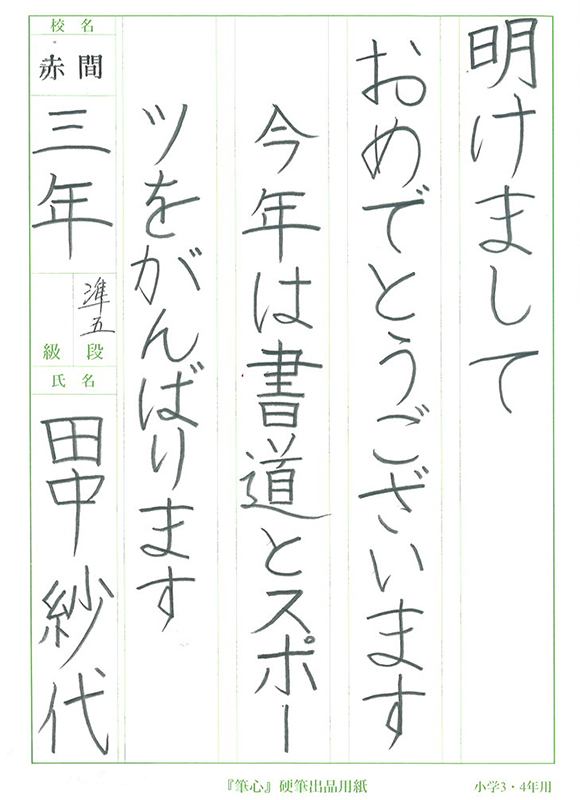 明けまして
おめでとうございます
今年は書道とスポー
ツをがんばります
校名
赤間
三年
準五
級 段
氏名
田中 紗代
『筆心』硬筆出品用紙
小学3・4年用